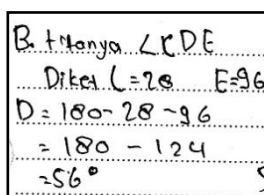 B. titanya ∠CDE
Diket C = 28 E=96
D = 180 - 28 - 96
= 180 - 124
= 56°